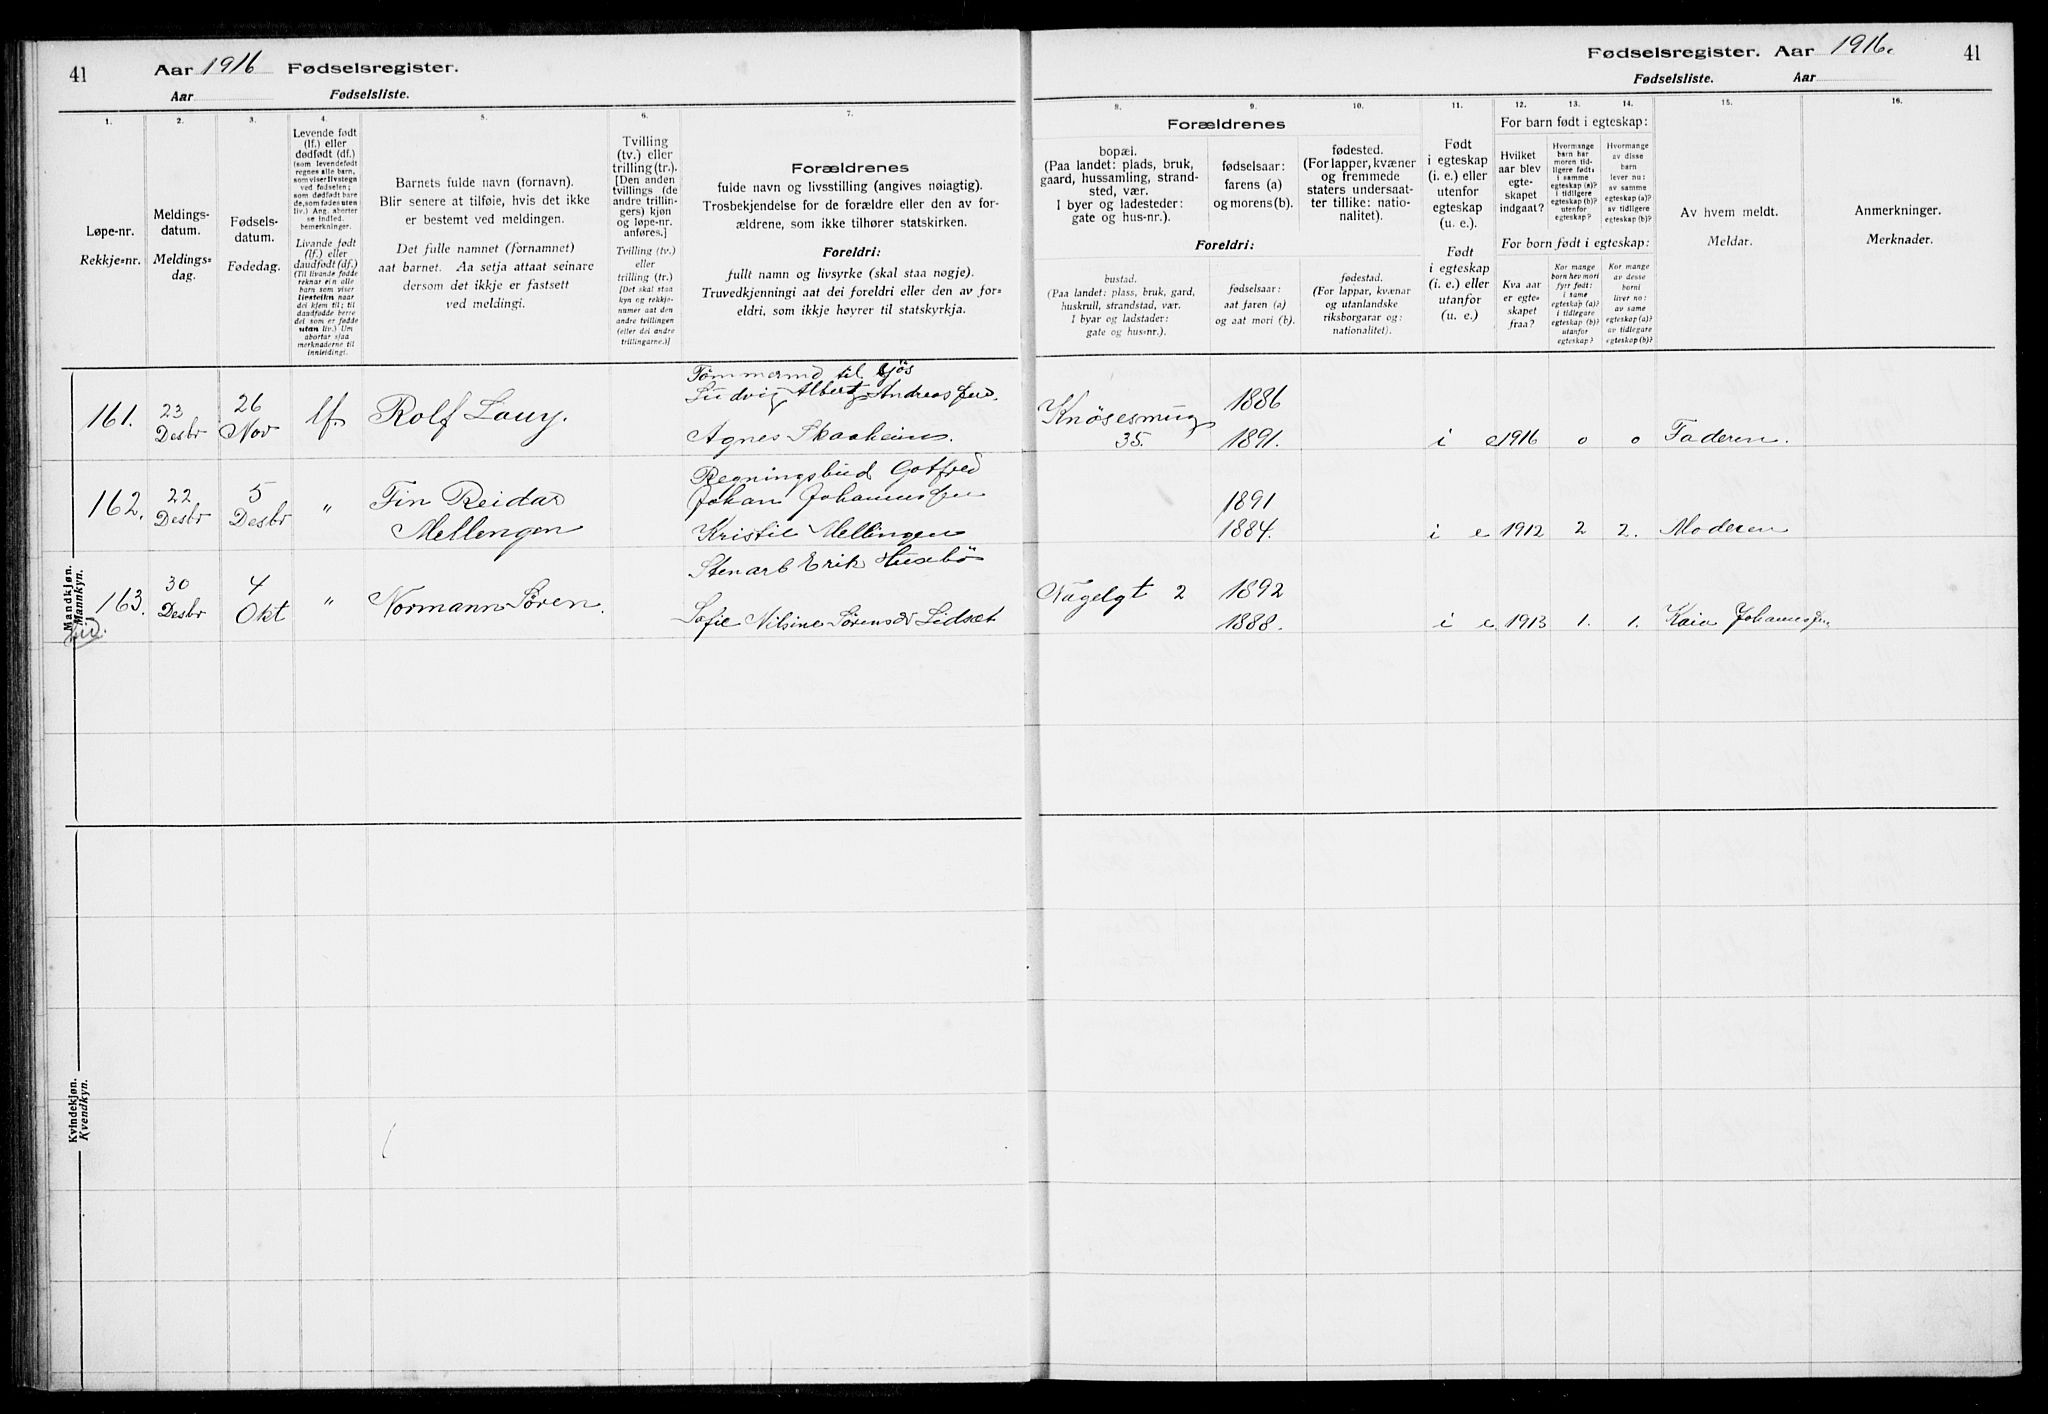 41
Aar 1916 Fødselsregister.
Aar Fødselsliste.
1.
2.
3.
4.
5.
6.
7.
Løpe-nr.
Rekkje=nr.
Meldings-
datum.
Meldings=
dag.
Fødsels-
datum.
Fødedag.
Levende født
(lf.) eller
dødfødt (df.)
(som levendefødt
regnes alle barn,
som viser livstegn
ved fødselen;
som dødfødt bare
de, som fødes uten
liv.) Ang. aborter
se indled.
bemerkninger.
Livande født
(lf.) eller
daudfødt (df.)
(Til livande fødde
reknar ein alle
barn som viser
livsteikn naar
dei kjem til; til
daudfødde berre
dei som er fødde
utan liv.) Um
abortar sjaa
merknaderne til
innleidingi.
Barnets fulde navn (fornavn).
Blir senere at tilføie, hvis det ikke
er bestemt ved meldingen.
Det fulle namnet (fornamnet)
aat barnet. Aa setja attaat seinare
dersom det ikkje er fastsett
ved meldingi.
Tvilling
(tv.) eller
trilling (tr.).
[Den anden
tvillings (de
andre trillin-
gers) kjøn
og løpe-nr.
anføres.]
Tvilling (tv.)
eller
trilling (tr.)
[Det skal staa
kyn og rekkje-
numer aat den
andre tvillingen
(eller dei andre
trillingarne.)]
Forældrenes
fulde navn og livsstilling (angives nøiagtig).
Trosbekjendelse for de forældre eller den av for-
ældrene, som ikke tilhører statskirken.
Foreldri:
fullt namn og livsyrke (skal staa nøgje).
Truvedkjenningi aat dei foreldri eller den av for=
eldri, som ikkje høyrer til statskyrkja.
Mandkjøn.
Mannkyn.
161.
23
Desbr
26
Nov
lf.
Rolf Lauy.
Tömmermd til sjös
Ludvig Albert Andreassen.
Agnes Skaaheim.
162.
22
Desbr
5
Desbr
"
Fin Reidar
Mellengen
Regningsbud Gotfred
Johan Johannessen
Kristie Mellingen
163.
30
Desbr
4
Okt
"
Normann Sören.
Stenarb Erik Husebö
Sofie Nilsine Sörensdr Lidset
Kvindekjøn.
Kvendkyn.
Fødselsregister. Aar 1916.
41
Fødselsliste. Aar
8.
9.
10.
11.
12.
13.
14.
15.
16.
Forældrenes
bopæl.
(Paa landet: plads, bruk,
gaard, hussamling, strand-
sted, vær.
I byer og ladesteder:
gate og hus-nr.).
fødselsaar:
farens (a)
og morens (b).
fødested.
(For lapper, kvæner
og fremmede
staters undersaat-
ter tillike: natio-
nalitet).
Foreldri:
bustad.
(Paa landet: plass, bruk, gard,
huskrull, strandstad, vær.
I byar og ladstader:
gate og hus=nr.).
fødselsaar:
aat faren (a)
og aat mori (b).
fødestad.
(For lappar, kvænar
og utanlandske
riksborgarar og:
nationalitet).
Født
i egteskap
(i. e.) eller
utenfor
egteskap
(u. e.).
Født
i egteskap
(i. e.) eller
utanfor
egteskap
(u. e.)
For barn født i egteskap:
Hvilket
aar blev
egte-
skapet
indgaat?
Hvormange
barn har
moren tid-
ligere født:
i samme
egteskap (a)?
i tidligere
egteskap (b)?
utenfor
egteskap?
Hvormange
av disse
barn
lever nu:
av samme
egteskap (a)?
av tidligere
egteskap (b)?
For born født i egteskap:
Kva aar
er egte=
skapet
fraa?
Kor mange
born hev mori
fyrr født:
i same
egteskap (a)?
i tidlegare
egteskap (b)?
utanfor
egteskap?
Kor mange
av desse
borni
liver no:
av same
egteskap (a)?
av tidlegare
egteskap (b)?
Av hvem meldt.
Meldar.
Anmerkninger.
Merknader.
Knösesmug
35.
1886
1891.
i e
1916
0
0
Faderen.
1891
1884.
i e
1912
2
2.
Moderen
Nagelgt 2
1892
1888.
i e
1913
1.
1.
Kaia Johannessen.